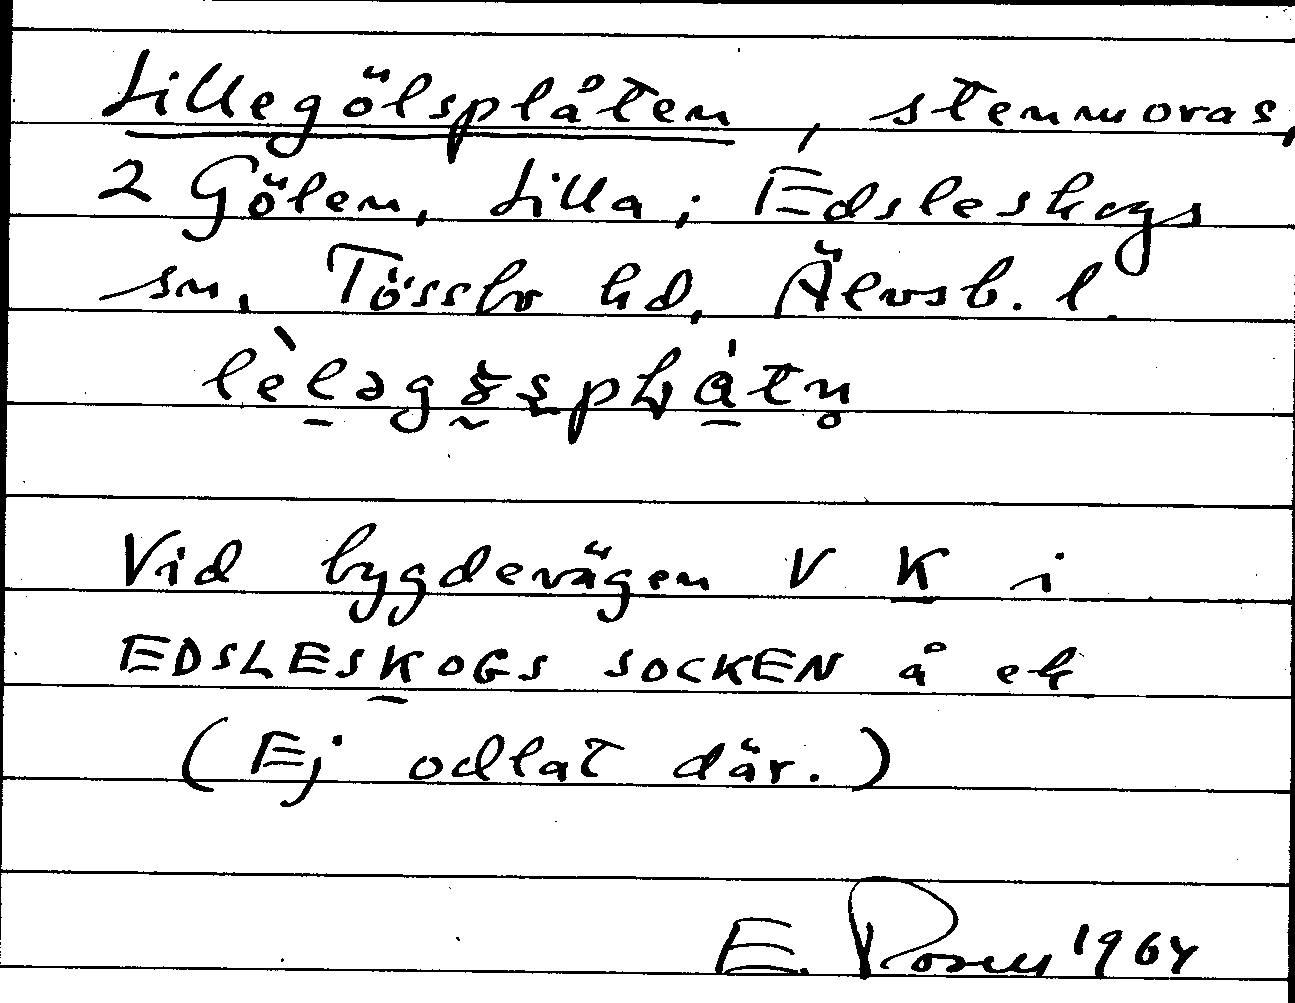 Lillegölsplåten, stenmoras,
2 Gölen, Lilla; Edsleskogs
sn, Tössbo hd, Älvsb. l.
Vid bygdevägen V K i
EDSLESKOGS SOCKEN å ek
(Ej odlat där.)
E. Rosell 1964